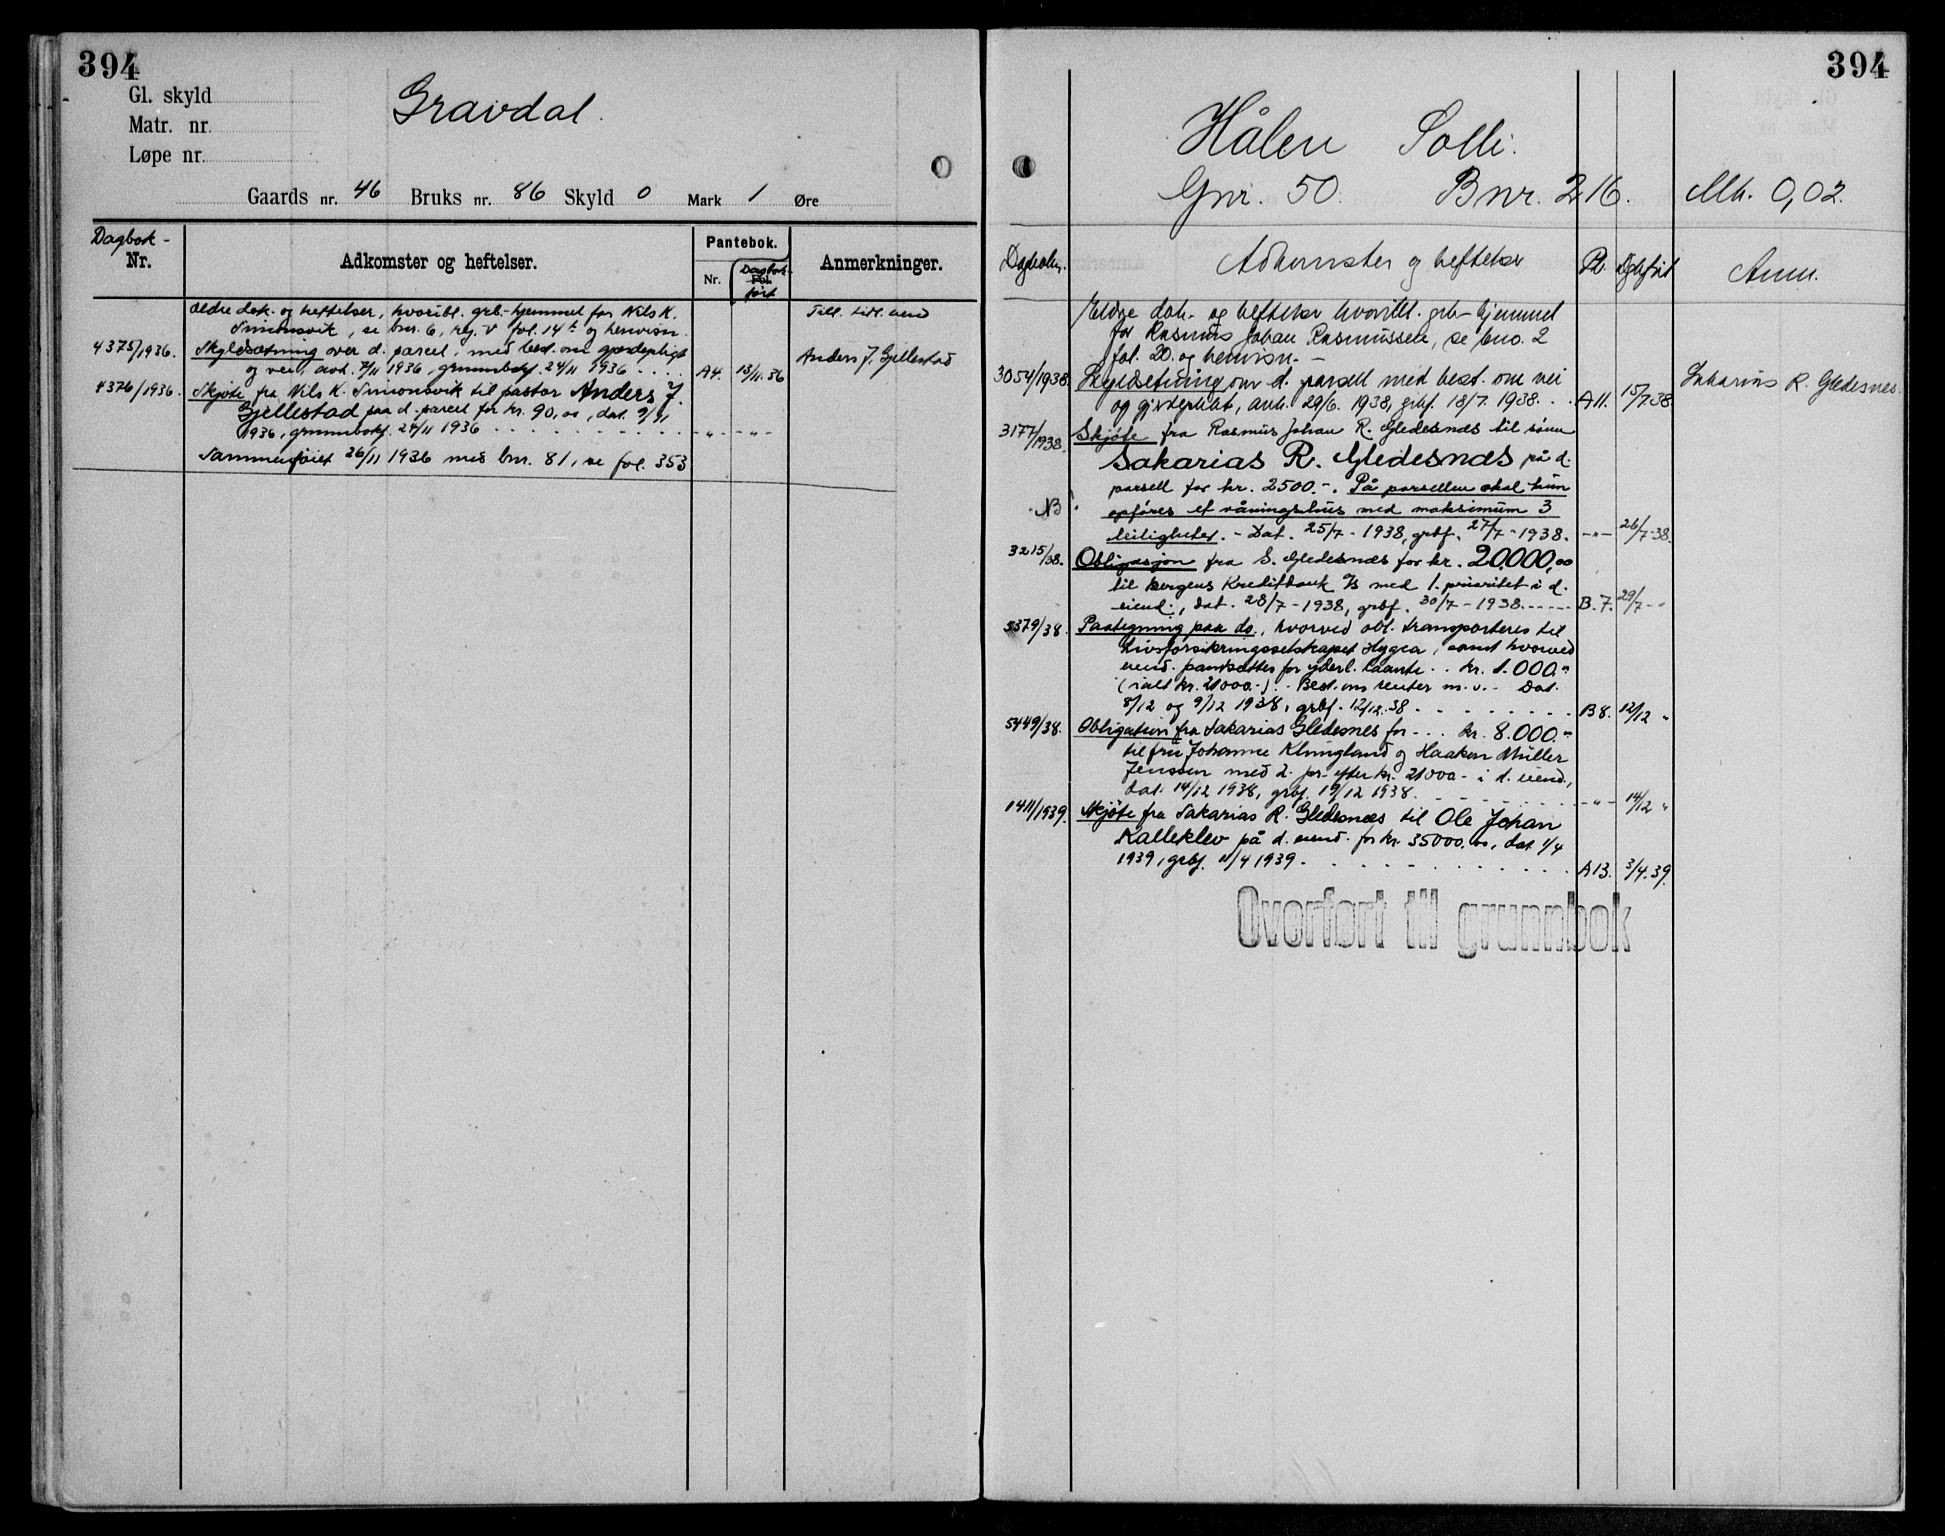 394
Gl. skyld
Matr. nr.
Løpe nr.
Gravdal.
Gaards nr. 46 Bruks nr. 86 Skyld 0 Mark 1 Øre
Dagbok-
Nr.
Adkomster og heftelser.
Pantebok.
Nr.
Dagbok-
Fol.
ført
Anmerkninger.
Ældre dok. og heftelser, hvoribl. grb.-hjemmel for Nils K.
Simonsvik, se bnr. 6, reg. V fol. 14 og henvisn.
Till. tidl. eiend
4375/1936. Skyldsætning over d. parcel, med best. om gjerdepligt
og vei, avh. 7/11 1936, grunnbokf. 24/11 1936 . . . . A4. 13/11.36
Anders J. Gjellestad
4376/1936. Skjøte fra Nils K. Simonsvik til pastor Anders J.
Gjellestad paa d. parcel for kr. 90,00, dat. 9/11
1936, grunnbokf. 24/11 1936 . . . . . . . . . . - " - - " -
Sammenføiet 26/11 1936 med bnr. 81, se fol. 353
394
Hålen Solli.
Gnr. 50. Bnr. 216. Mk. 0,02.
Dagboknr. Adkomster og heftelser Pb. Dgbført Anm.
Eldre dok. og heftelser hvoribl. grb-hjemmel
for Rasmus Johan Rasmussen, se bno. 2
fol. 20. og henvisn. -
3054/1938. Skyldsetning over d. parsell med best. om vei
og gjerdeplikt, avh. 29/6. 1938, grbf. 18/7. 1938. . . A11. 15/7.38.
Sakarias R. Gledesnes.
3177/1938. Skjøte fra Rasmus Johan R. Gledesnes til sønn
Sakarias R. Gledesnæs på d.
parsell for kr. 2500.-. På parsellen skal kun
NB! opføres et våningshus med maksimum 3
leiligheter. - Dat. 25/7 - 1938, grbf. 27/7 - 1938. - " - 26/7-38.
3215/38. Obligasjon fra S. Gledesnæs for kr. 20.000,00
til Bergens Kreditbank A/S med 1. prioritet i d.
eiend., dat. 28/7 - 1938, grbf. 30/7 - 1938. ----- B.7. 29/7 - "
5379/38. Paategning paa do., hvorved obl. transporteres til
Livsforsikringsselskapet Hygea, samt hvorved
eiend. pantsættes for yderl. laante . . kr. 1.000.-
(ialt kr. 21000.-). - Best. om renter m.v. - Dat.
8/12 og 9/12 1938, grbf. 12/12.38 . . . . . . . B8. 12/12 "
5449/38. Obligation fra Sakarias Gledesnes for - . . kr. 8.000.-
til fru Johanne Klungland og Haakon Müller
Jenssen med 2. pr. efter kr. 21000.- i d. eiend.,
dat. 14/12 1938, grbf. 19/12 1938. . . . . . . - " - 14/12 "
1411/1939. Skjøte fra Sakarias R. Gledesnæs til Ole Johan
Kalleklev på d. eiend. for kr. 35000.00, dat. 1/4
1939, grbf. 11/4 1939. . . . . . . . . . . . . A13. 3/4.39.
Overført til grunnbok